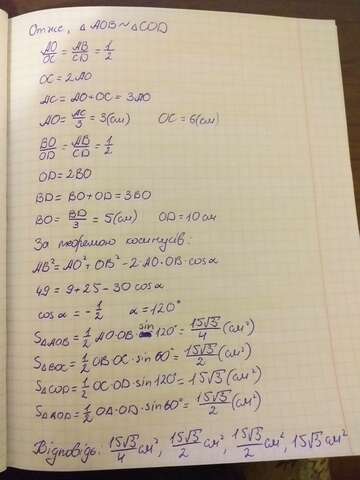 Отже, △AOB ~ △COD
AO/OC = AB/CD = 1/2
OC = 2AO
AC = AO + OC = 3AO
AO = AC/3 = 3(см) OC = 6(см)
BO/OD = AB/CD = 1/2
OD = 2BO
BD = BO + OD = 3BO
BO = BD/3 = 5(см) OD = 10 см
За теоремою косинусів:
AB² = AO² + OB² - 2·AO·OB·cosα
49 = 9 + 25 - 30 cosα
cosα = -1/2 α = 120°
S△AOB = 1/2 AO·OB·sin 120° = 15√3/4 (см²)
S△BOC = 1/2 OB·OC·sin 60° = 15√3/2 (см²)
S△COD = 1/2 OC·OD·sin 120° = 15√3 (см²)
S△AOD = 1/2 OA·OD·sin 60° = 15√3/2 (см²)
Відповідь: 15√3/4 см², 15√3/2 см², 15√3/2 см², 15√3 см²